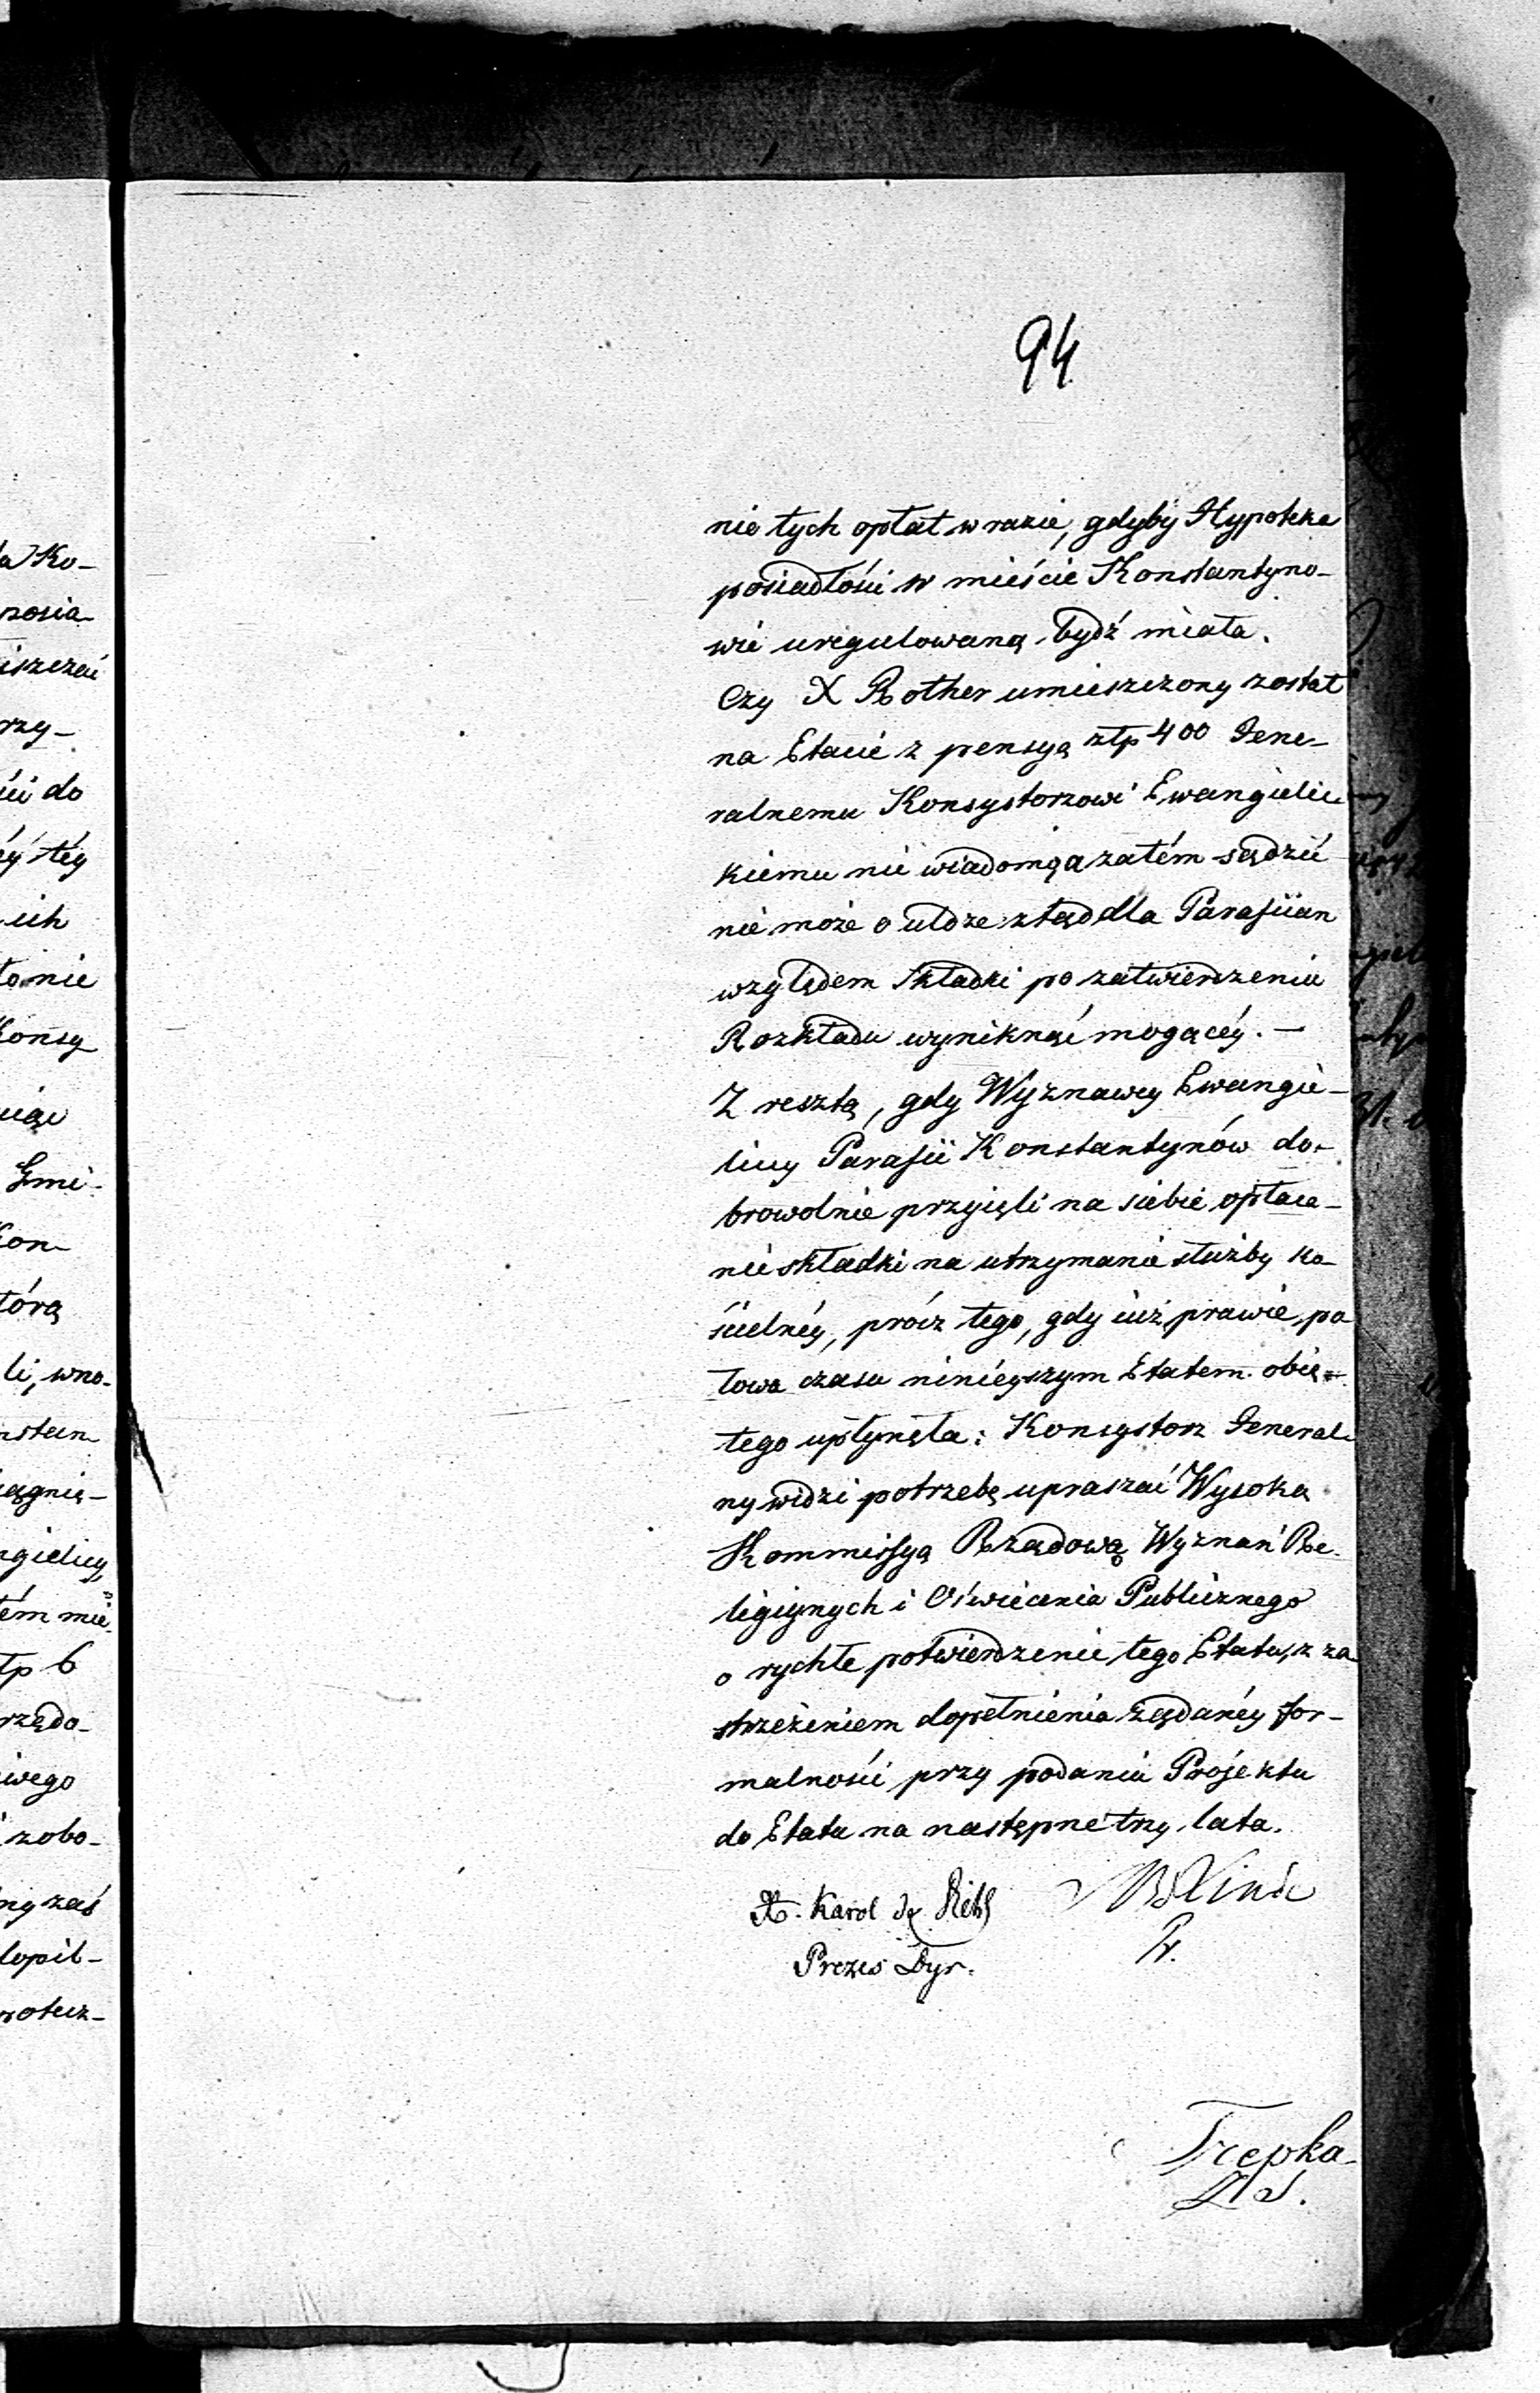 94
nie tych opłat w razie, gdyby Hypoteka
posiadłości w mieście Konstantyno-
wie uregulowaną bydź miała.
Czy X Rother umieszczony został
na Etacie z pensyą złp 400 Jene-
ralnemu Konsystorzowi Ewangielic-
kiemu nie wiadomo, a zatém sądzić
nie może o uldze ztąd dla Parafiian
względem składki po zatwierdzeniu
Rozkładu wyniknąć mogącéy. —
Z resztą, gdy Wyznawcy Ewangie-
liccy Parafii Konstantynów do-
browolnie przyięli na siebie opłaca-
nie składki na utrzymanie służby ko-
ścielnéy, prócz tego, gdy iuż prawie po
łowa czasu ninieyszym Etatem obię-
tego upłynęła: Konsystorz Jeneral-
ny widzi potrzebę upraszać Wysoką
Kommissyą Rządową Wyznań Re-
ligiynych i Oświecenia Publicznego
o rychłe potwierdzenie tego Etatu, z za
strzeżeniem dopełnienia żądanéy for-
malności przy podaniu Projektu
do Etatu na następne trzy lata.
X. Karol
Prezes Dyr.
Pr.
Trepka
ko-
posia-
iszczać
rzy-
ści do
éy téy
ich
Konsy
Gmi-
Kon-
tórą
li, wno-
nstan
iągnię-
ngieliccy
tém mie
tp 6
rzędo-
iwego
zobo-
ny zaś